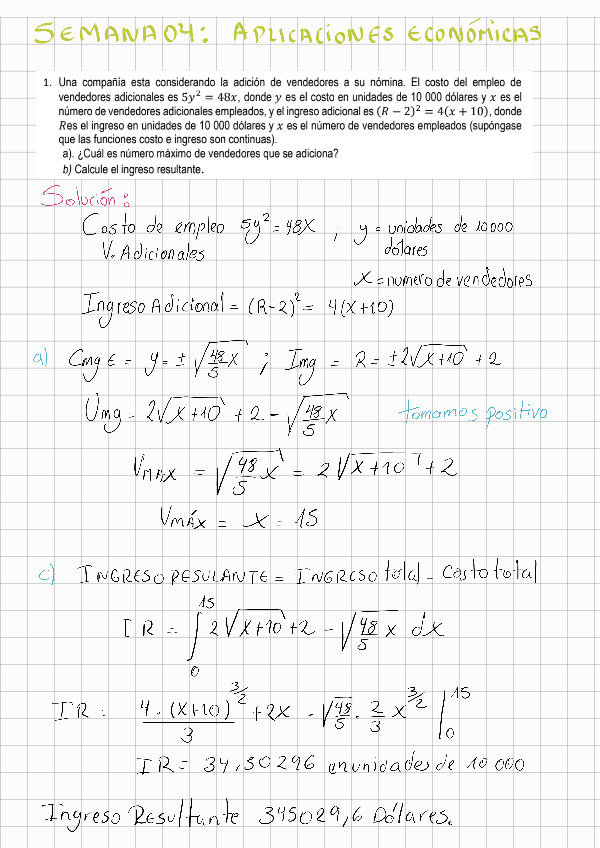 SEMANA04: APLICACIONES ECONÓMICAS
1. Una compañía esta considerando la adición de vendedores a su nómina. El costo del empleo de
vendedores adicionales es 5y² = 48x, donde y es el costo en unidades de 10 000 dólares y x es el
número de vendedores adicionales empleados, y el ingreso adicional es (R − 2)² = 4(x + 10), donde
Res el ingreso en unidades de 10 000 dólares y x es el número de vendedores empleados (supóngase
que las funciones costo e ingreso son continuas).
a). ¿Cuál es número máximo de vendedores que se adiciona?
b) Calcule el ingreso resultante.
Solución:
Costo de empleo 5y² = 48X , y = unidades de 10000
V. Adicionales dólares
X = numero de vendedores
Ingreso Adicional = (R-2)² = 4(X+10)
a) Cmg ε = y = ± √(48/5 X) ; Img = R = ±2√(X+10) + 2
Umg = 2√(X+10) + 2 - √(48/5 X) tomamos positivo
VMAX = √(48/5 X) = 2√(X+10) + 2
VMÁX = X = 15
c) INGRESO RESULANTE = INGRESO total - Costo total
IR = ∫₀¹⁵ 2√(X+10) + 2 - √(48/5 X) dX
IR = 4·(X+10)^(3/2)/3 + 2X - √(48/5) · 2/3 X^(3/2) |₀¹⁵
IR = 34,50296 en unidades de 10 000
Ingreso Resultante 345029,6 Dólares.